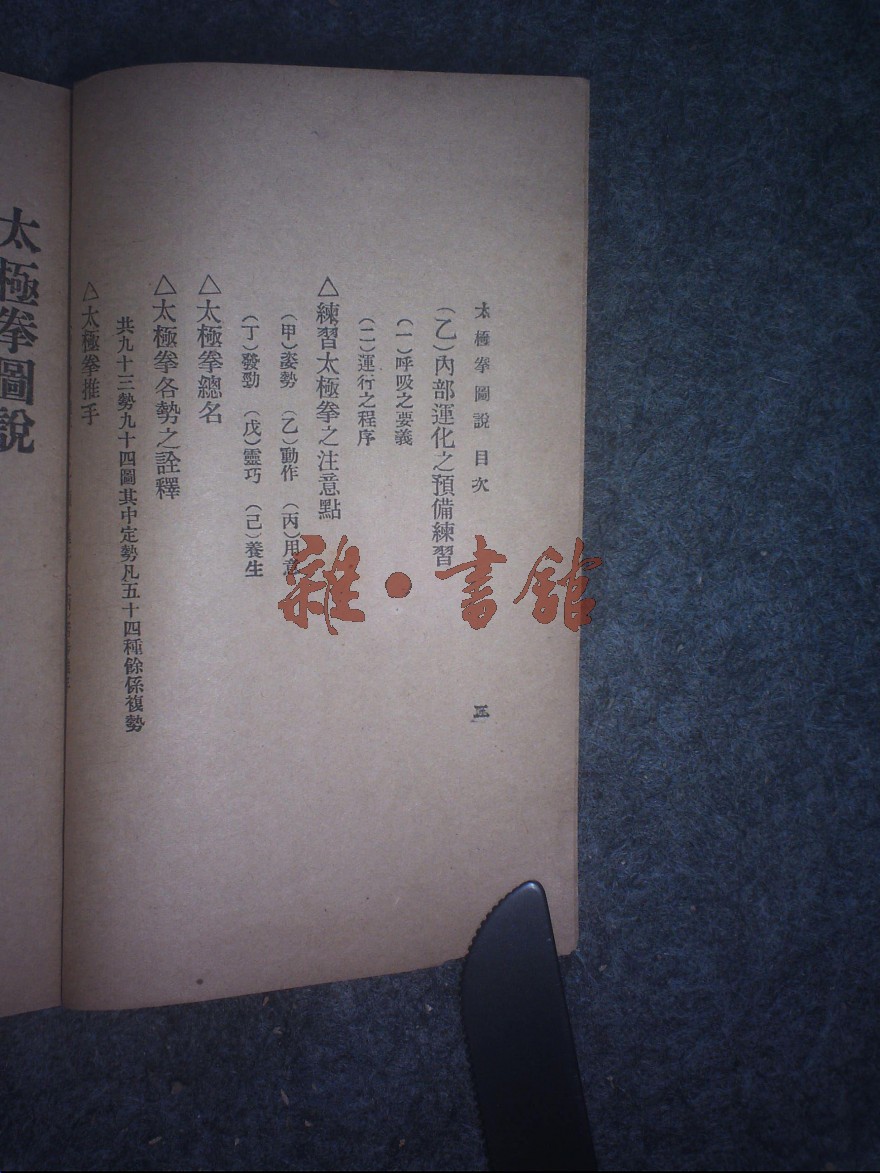 太極拳圖說 目次
（乙）內部運化之預備練習
（一）呼吸之要義
（二）運行之程序
△練習太極拳之注意點
（甲）姿勢 （乙）動作 （丙）用意
（丁）發勁 （戊）靈巧 （己）養生
△太極拳總名
△太極拳各勢之詮釋
共九十三勢九十四圖其中定勢凡五十四種餘係複勢
△太極拳推手
太極拳圖說
雜·書館